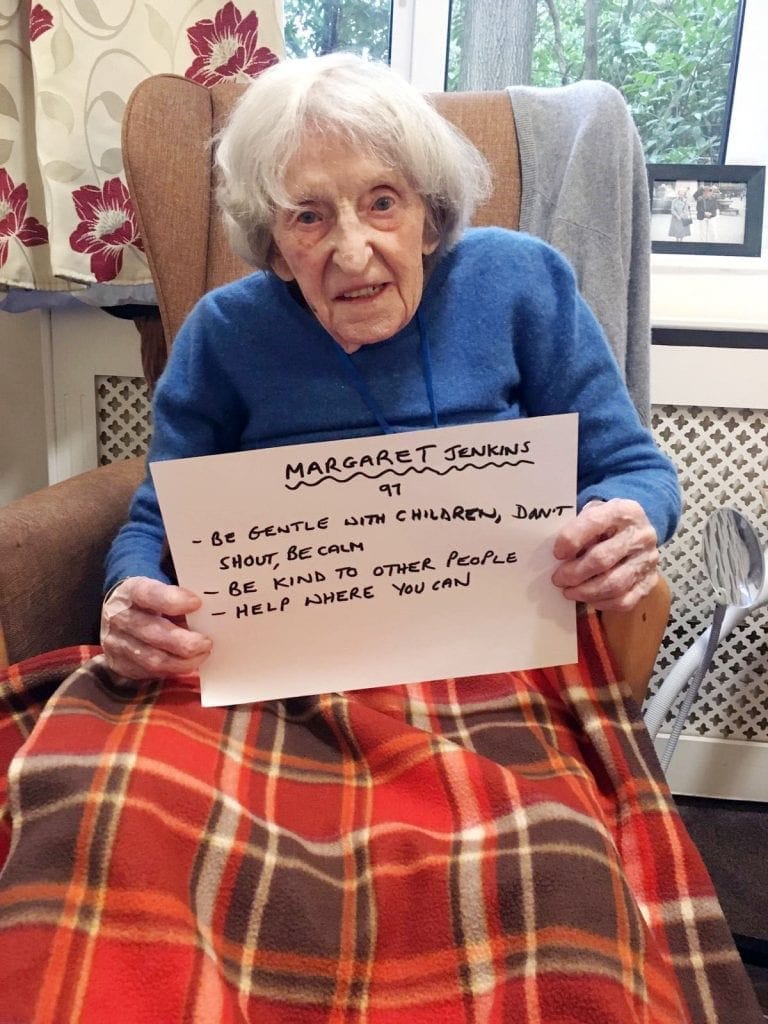 MARGARET JENKINS
97
- BE GENTLE WITH CHILDREN, DAN'T
SHOUT, BE CALM
- BE KIND TO OTHER PEOPLE
- HELP WHERE YOU CAN